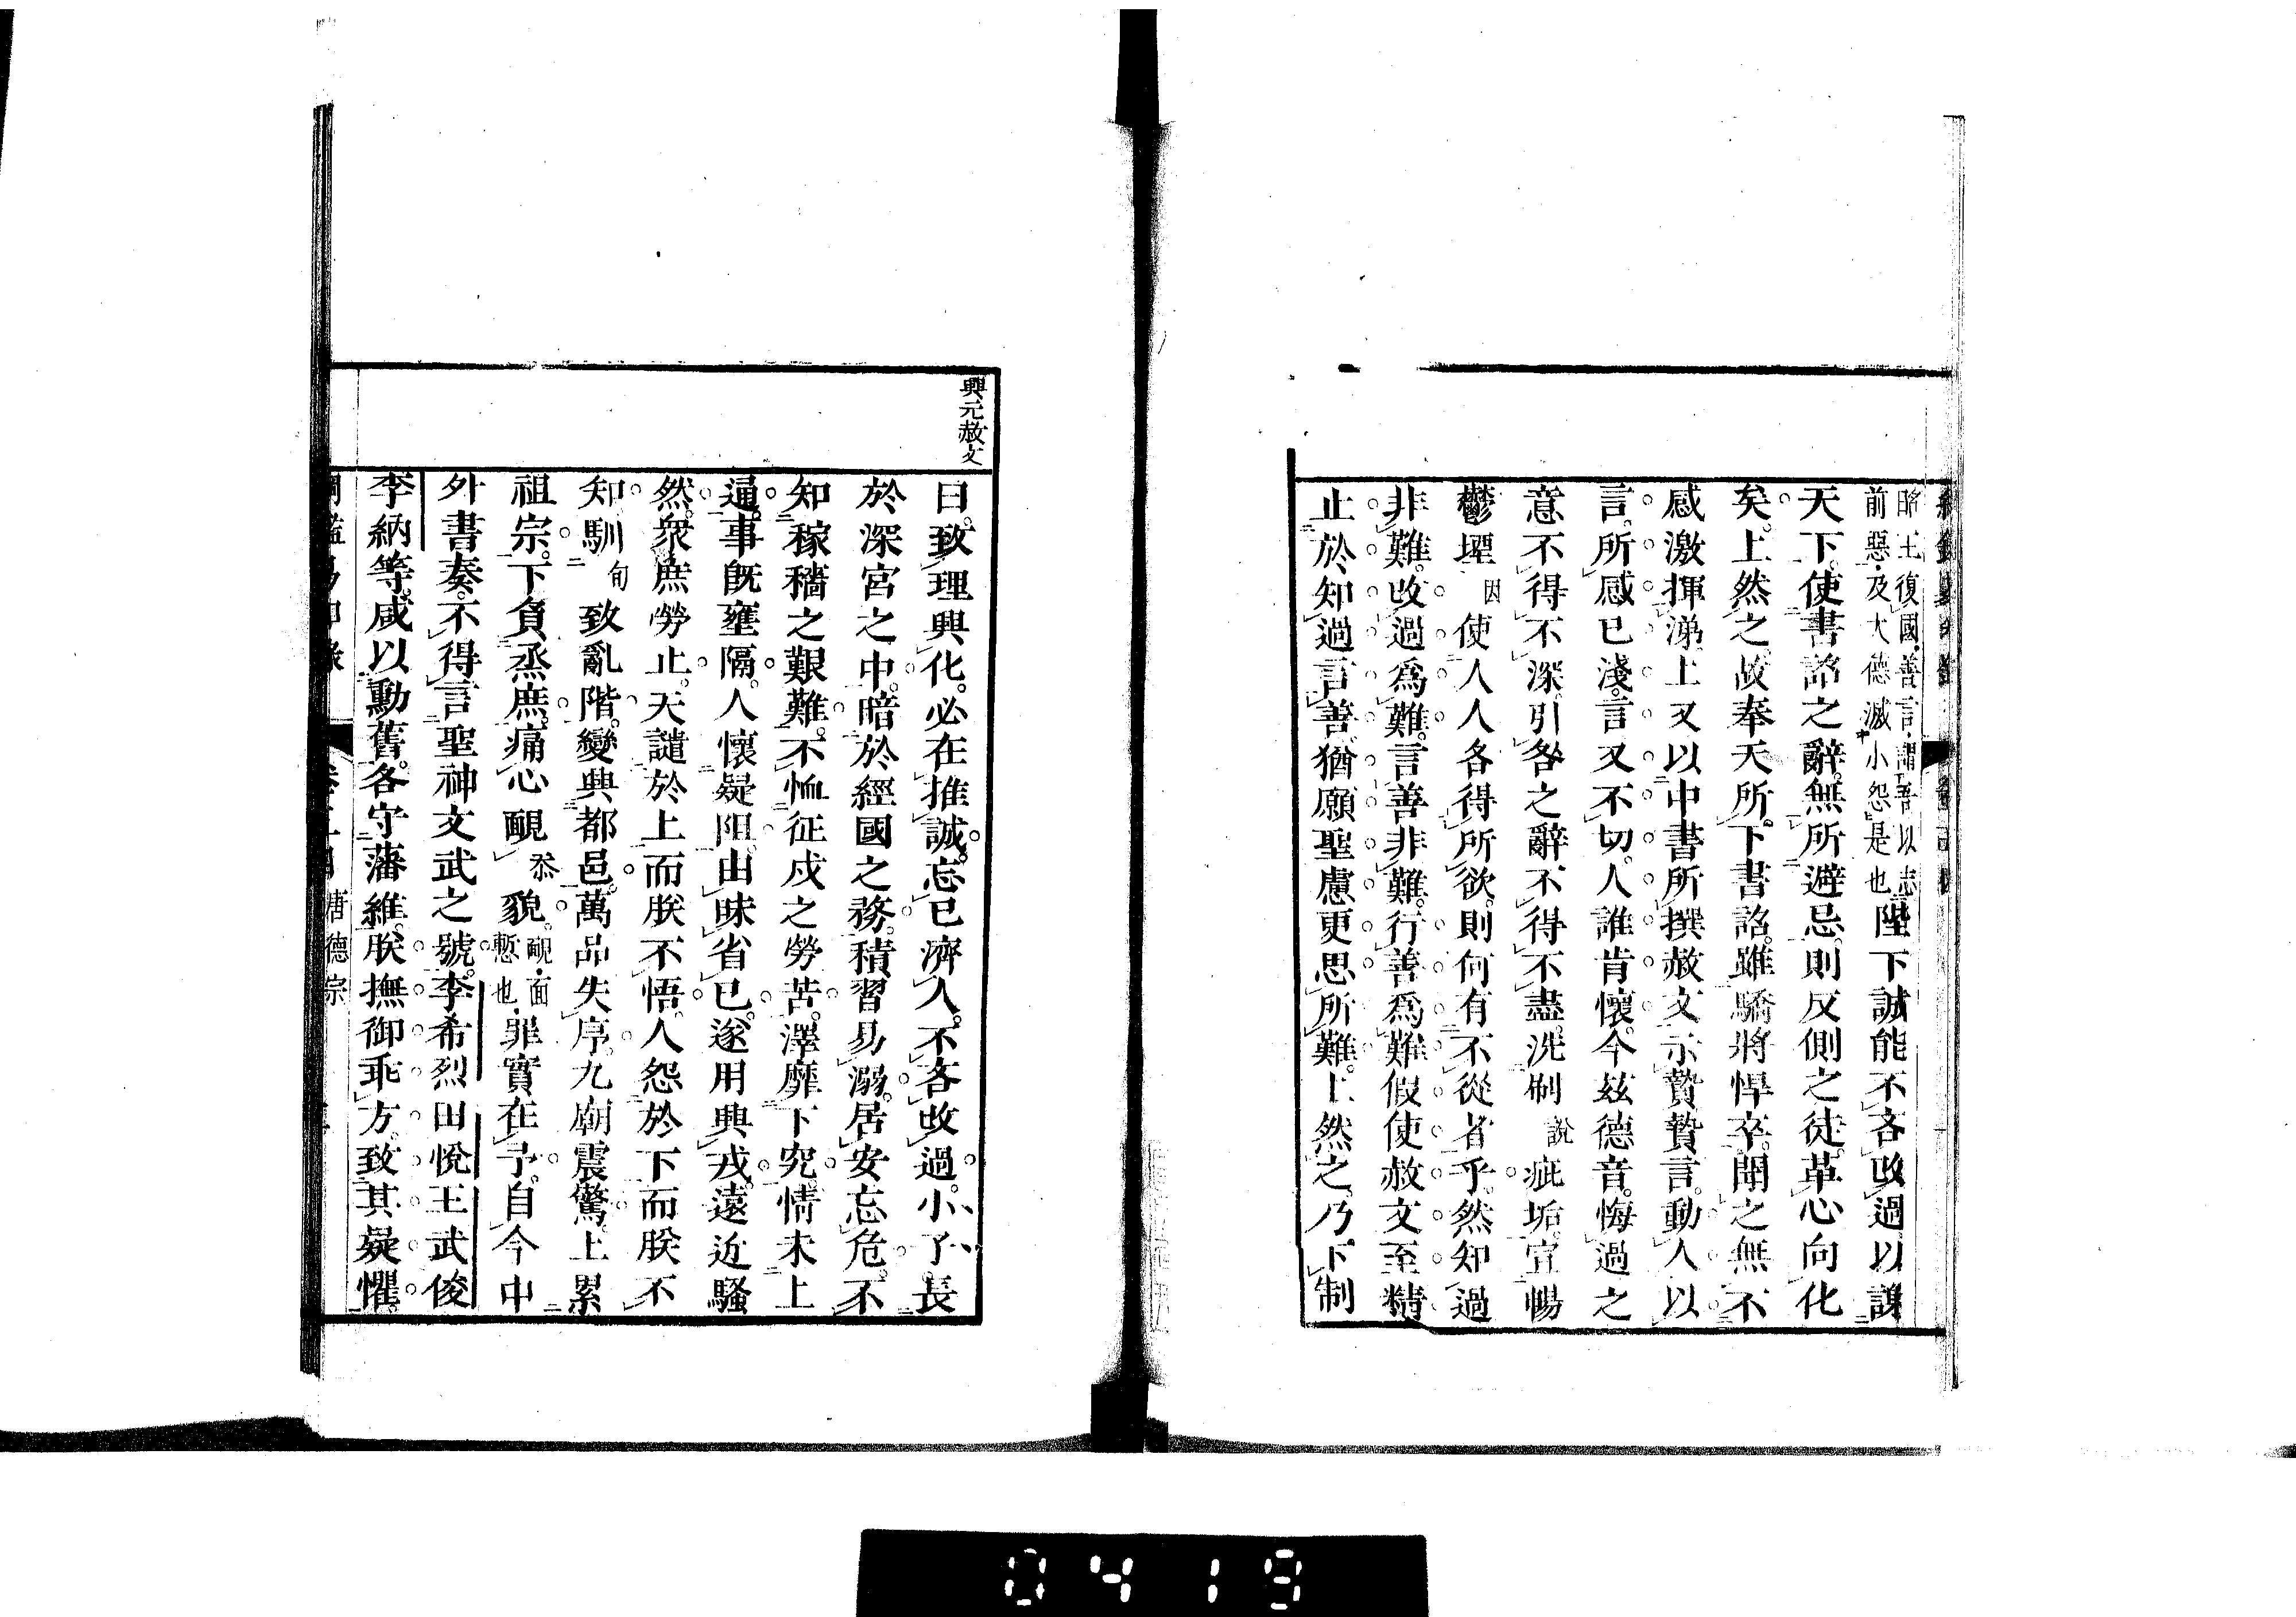 昭王復國善言謂吾以志
前惡及大德滅小怨是也陛下誠能不吝改過以謝
天下使書詔之辭無所避忌則反側之徒革心向化
矣上然之故奉天所下書詔雖驕將悍卒聞之無不
感激揮涕上又以中書所撰赦文示贄贄言動人以
言所感已淺言又不切人誰肯懷今玆德音悔過之
意不得不深引咎之辭不得不盡洗刷說疵垢宣暢
鬱堙因使人人各得所欲則何有不從者乎然知過
非難改過爲難言善非難行善爲難假使赦文至精
止於知過言善猶願聖慮更思所難上然之乃下制
興元赦文
曰致理興化必在推誠忘已濟人不吝改過小子長
於深宮之中暗於經國之務積習易溺居安忘危不
知稼穡之艱難不恤征戍之勞苦澤靡下究情未上
通事旣壅隔人懷疑阻由昧省已遂用興戎遠近騷
然衆庶勞止天譴於上而朕不悟人怨於下而朕不
知馴旬致亂階變興都邑萬品失序九廟震驚上累
祖宗下負烝庶痛心靦忝貌靦面慙也罪實在予自今中
外書奏不得言聖神文武之號李希烈田悅王武俊
李納等咸以勳舊各守藩維朕撫御乖方致其疑懼
唐德宗
0419